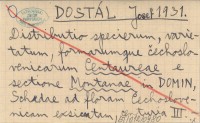 DOSTÁL Josef 1931.
Distributio specierum, varie-
tatum, formarumque čechoslo-
venicarum Centaureae e
sectione Montanae in DOMIN,
Schedae ad floram Čechoslove-
nicam exsiccatam. Turža III